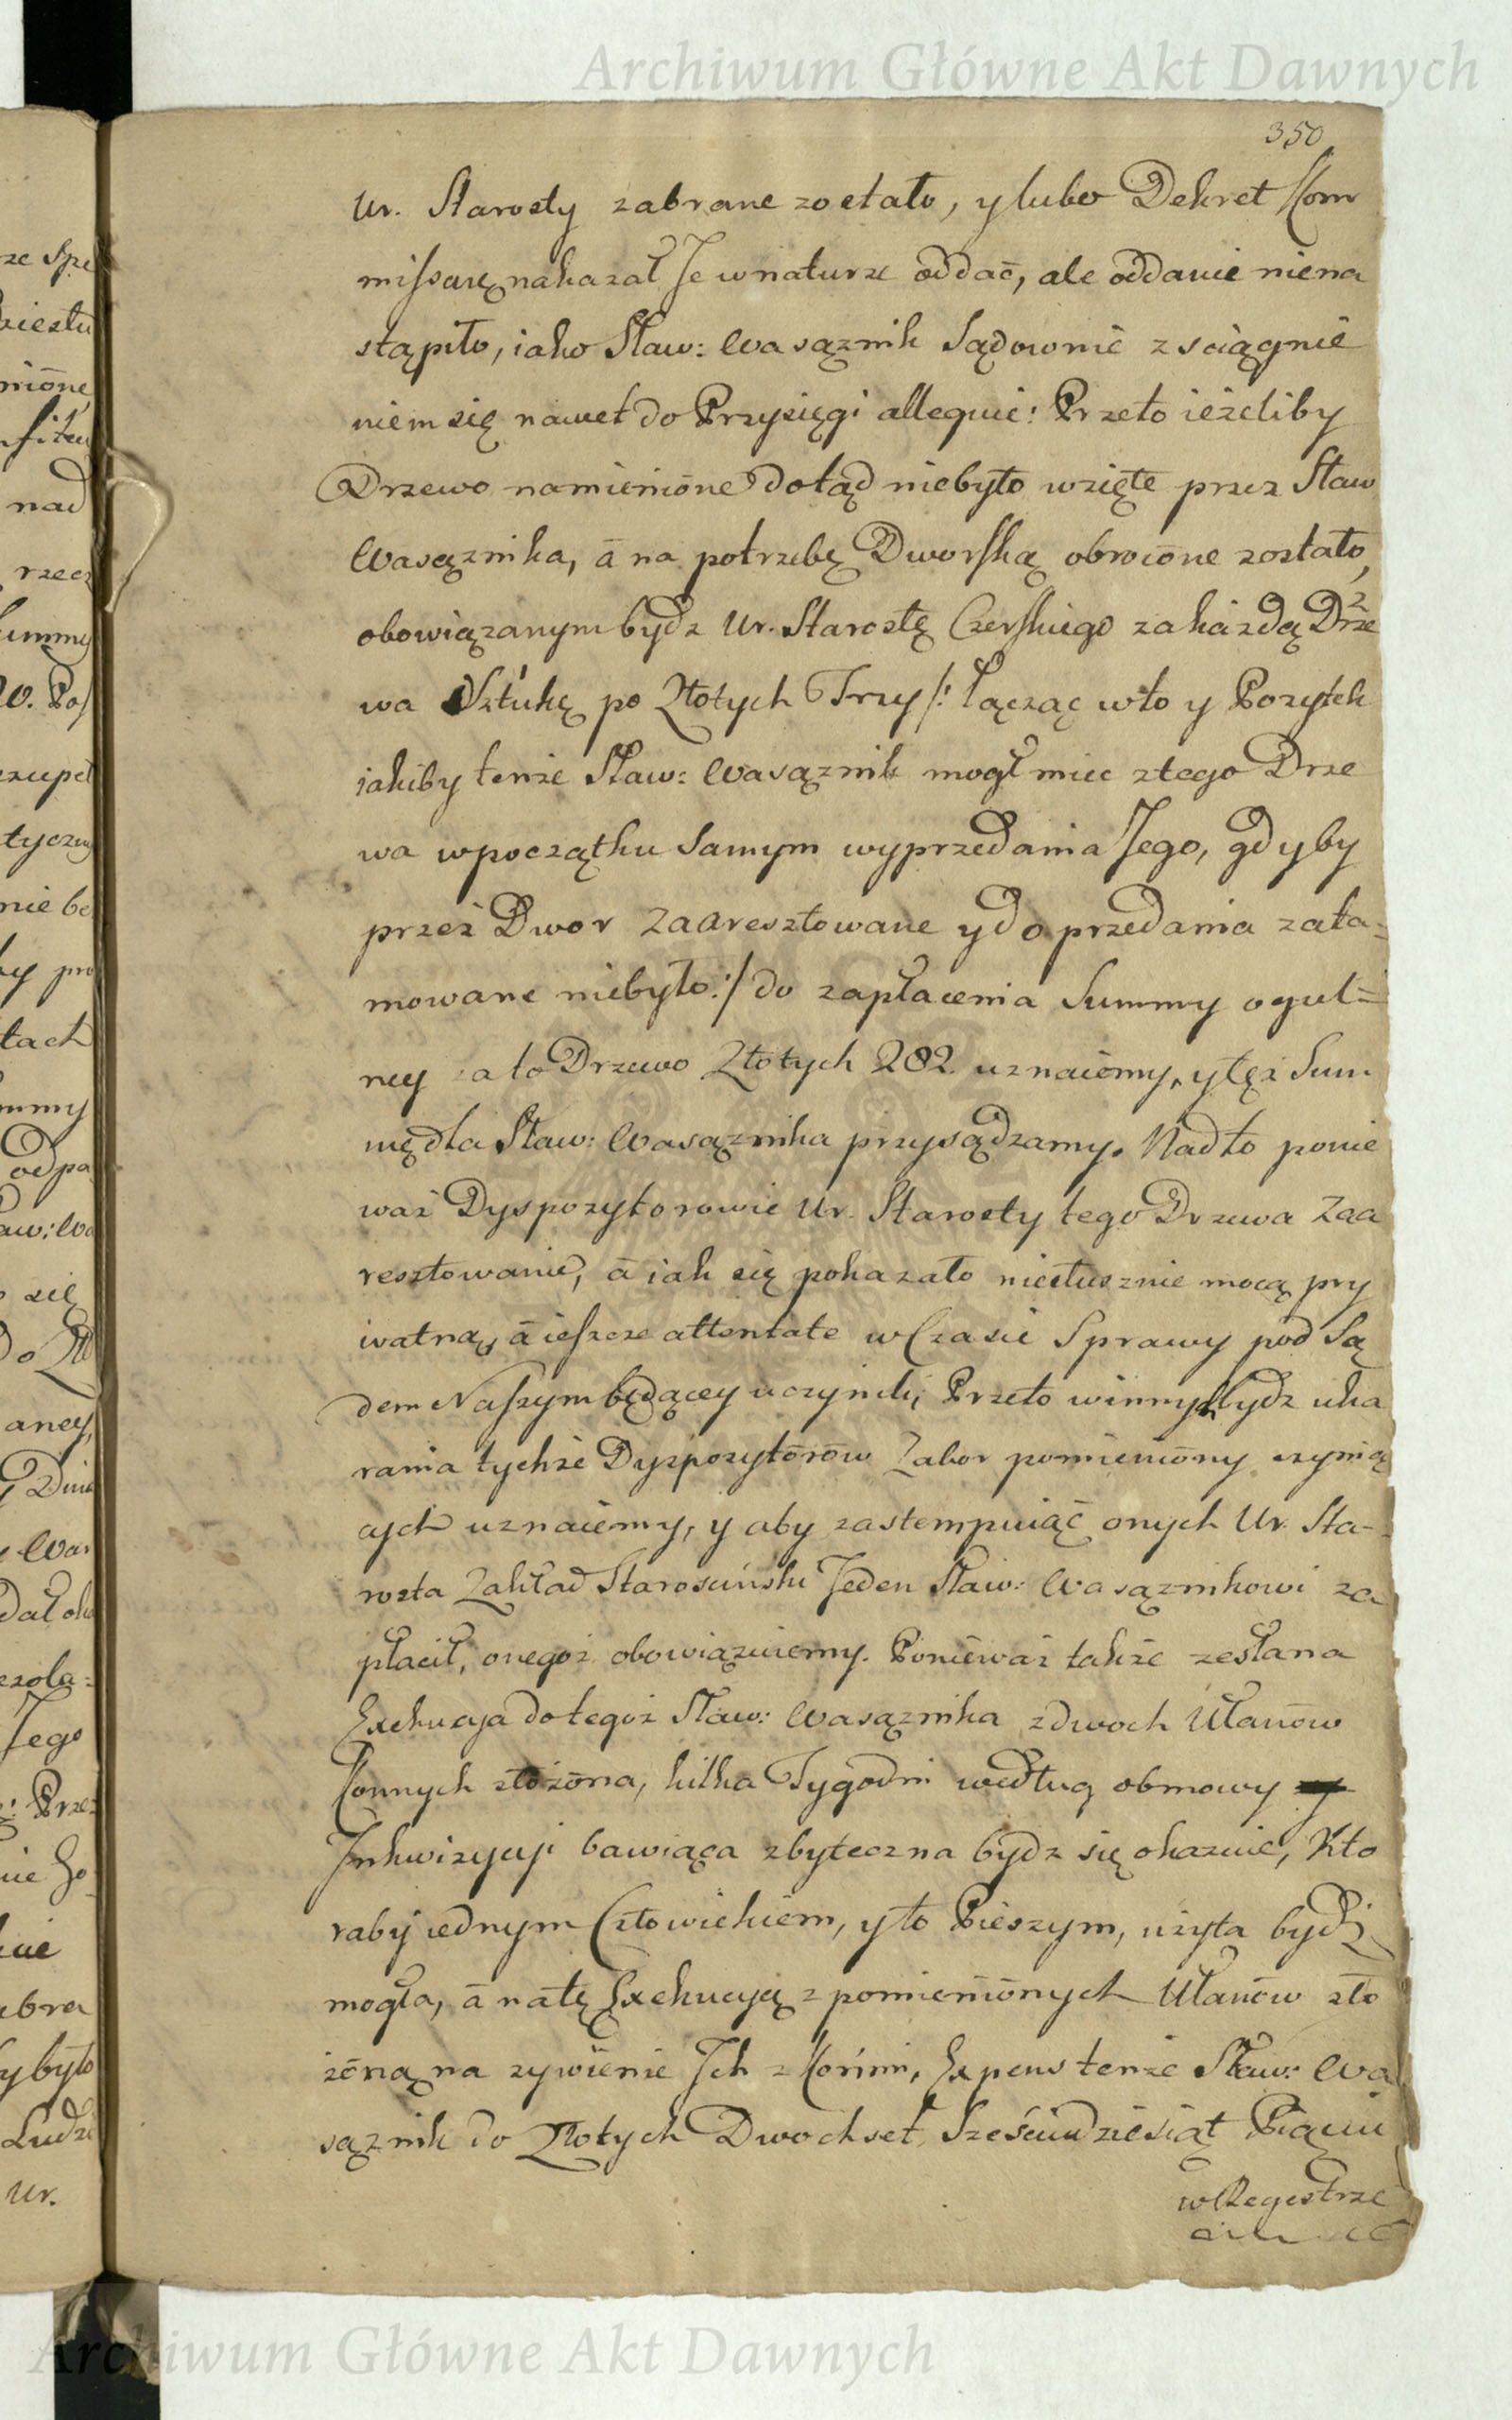 Archiwum Główne Akt Dawnych
350
Ur. Starosty zabrane zostało, y lubo Dekret Kom
missarę nakazał Je w naturze oddać, ale oddanie niena
stąpiło, iako Sław: Wasąznik Sądownie z sciągnie
niem się nawet do Przysięgi alleguie: Przeto ieżeliby
Drzewo namienione dotąd niebyło wzięte przez Sław
Wasąznika, ā na potrzebę Dworską obrocone zostało,
obowiązanym bydz Ur. Starostę Czerskiego za każdą Drze
wa Sztukę po Złotych Trzy /: łącząc w to y Pozytek
iakiby tenże Sław: Wasąznik mogł miec z tego Drze
wa w początku Samym wyprzedania Jego, gdyby
przez Dwor zaaresztowane y do przedania zata=
mowane niebyło :/ do zapłacenia Summy ogul=
ney za to Drzewo Złotych 282. uznaiemy, y tęż Sum
mę dla Sław: Wasąznika przysądzamy. Nadto ponie
waż Dyspozytorowie Ur. Starosty tego Drzewa Zaa
resztowanie, ā iak się pokazało niesłusznie mocą pry
watną, ā ieszcze attentate w Czasie Sprawy pod Są
dem Naszym będącey uczynili, Przeto winnych bydz uka
rania tychże Dyspozytorow Zabor pomieniony czynią
cych uznaiemy, y aby zastempuiąc onych Ur. Sta-
rosta Zakład Starosciński Jeden Sław: Wasąznikowi za
płacił, onegoż obowiązuiemy. Ponieważ także zesłana
Exekucya do tegoż Sław: Wasąznika z dwoch Ułanow
Konnych złożona, kilka Tygodni według obmowy
Inkwizycyi bawiąca zbyteczna bydz się okazuie, Kto
raby iednym Człowiekiem, y to Pieszym, użyta bydź
mogła, ā na tę Exekucyą z pomienionych Ułanow zło
żoną na zywienie Ich z Końmi, Expens tenże Sław: Wa
sąznik do Złotych Dwochset Sześciudziesiąt Piąciu
w Regestrze
Archiwum Główne Akt Dawnych